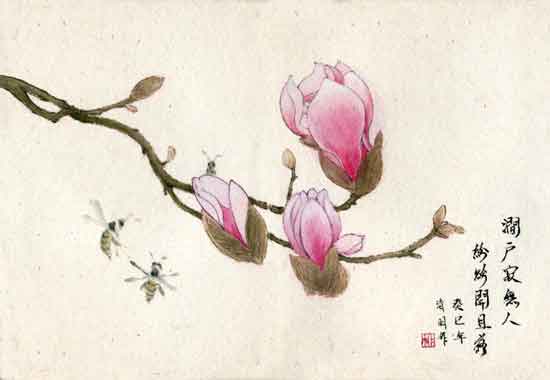 澗户寂無人
紛紛開且落
癸巳年